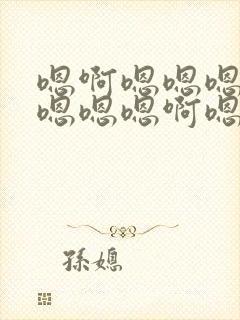 嗯啊嗯嗯嗯
嗯嗯嗯啊嗯
孫媳